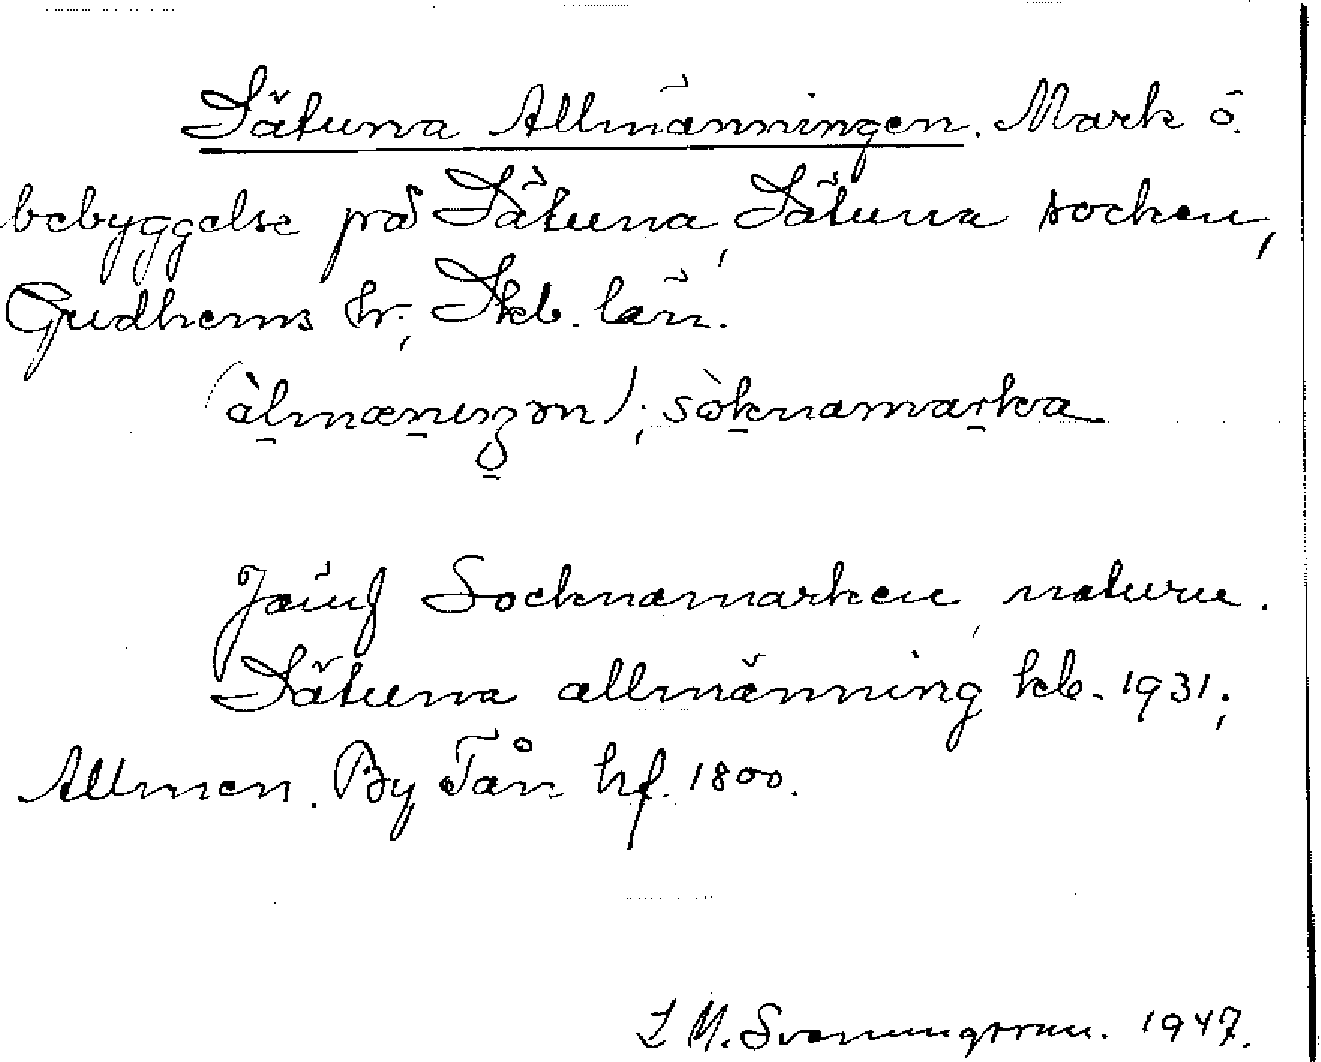 Sätuna Allmänningen. Mark ö.
bebyggelse på Sätuna, Sätuna socken,
Gudhems hr, Skb. län.
(àlmæniŋən); sòknamarka
Jämf Socknamarken, naturn.
Sätuna allmänning kb. 1931;
Allmen. By Tån hf. 1800.
1947.